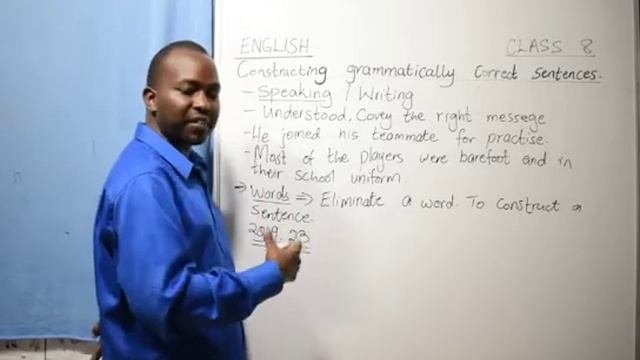 ENGLISH CLASS 8
Constructing grammatically correct sentences.
- Speaking / Writing
- Understood, Covey the right messege
- He joined his teammate for practise.
- Most of the players were barefoot and in
their school uniform.
→ Words ⇒ Eliminate a word. To construct a
Sentence.
2019. 23